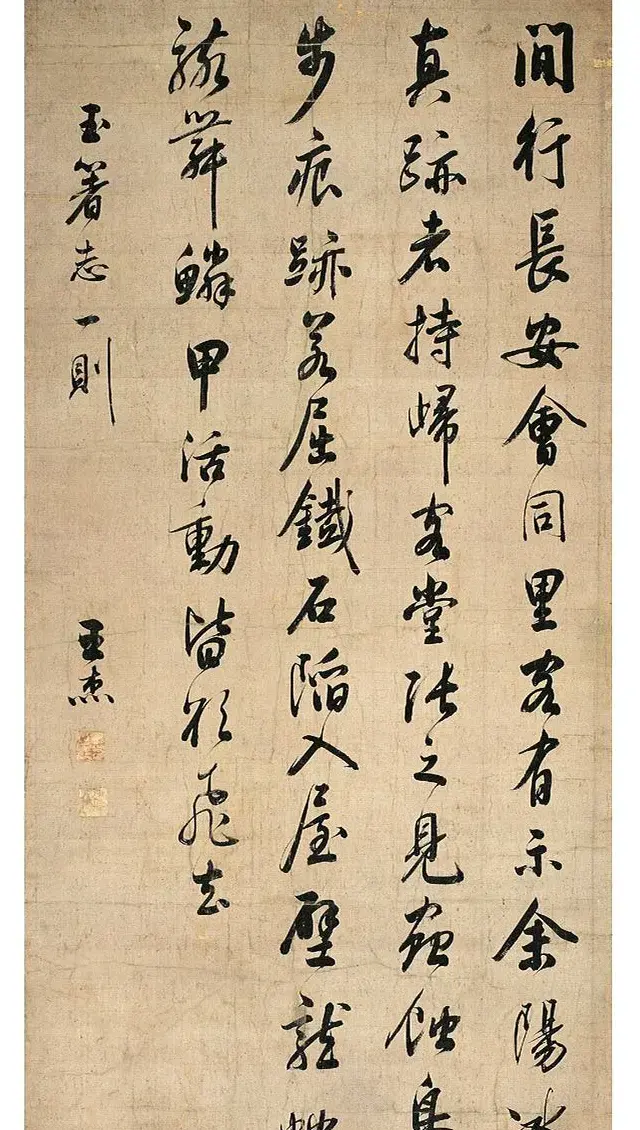 間行長安會同里客有示余陽
真跡者持歸客堂張之見蟲蝕鳥
步痕跡若屈鐵石陷入屋壁龍
骇舞鱗甲活動皆欲飛去
玉箸志一則
王杰